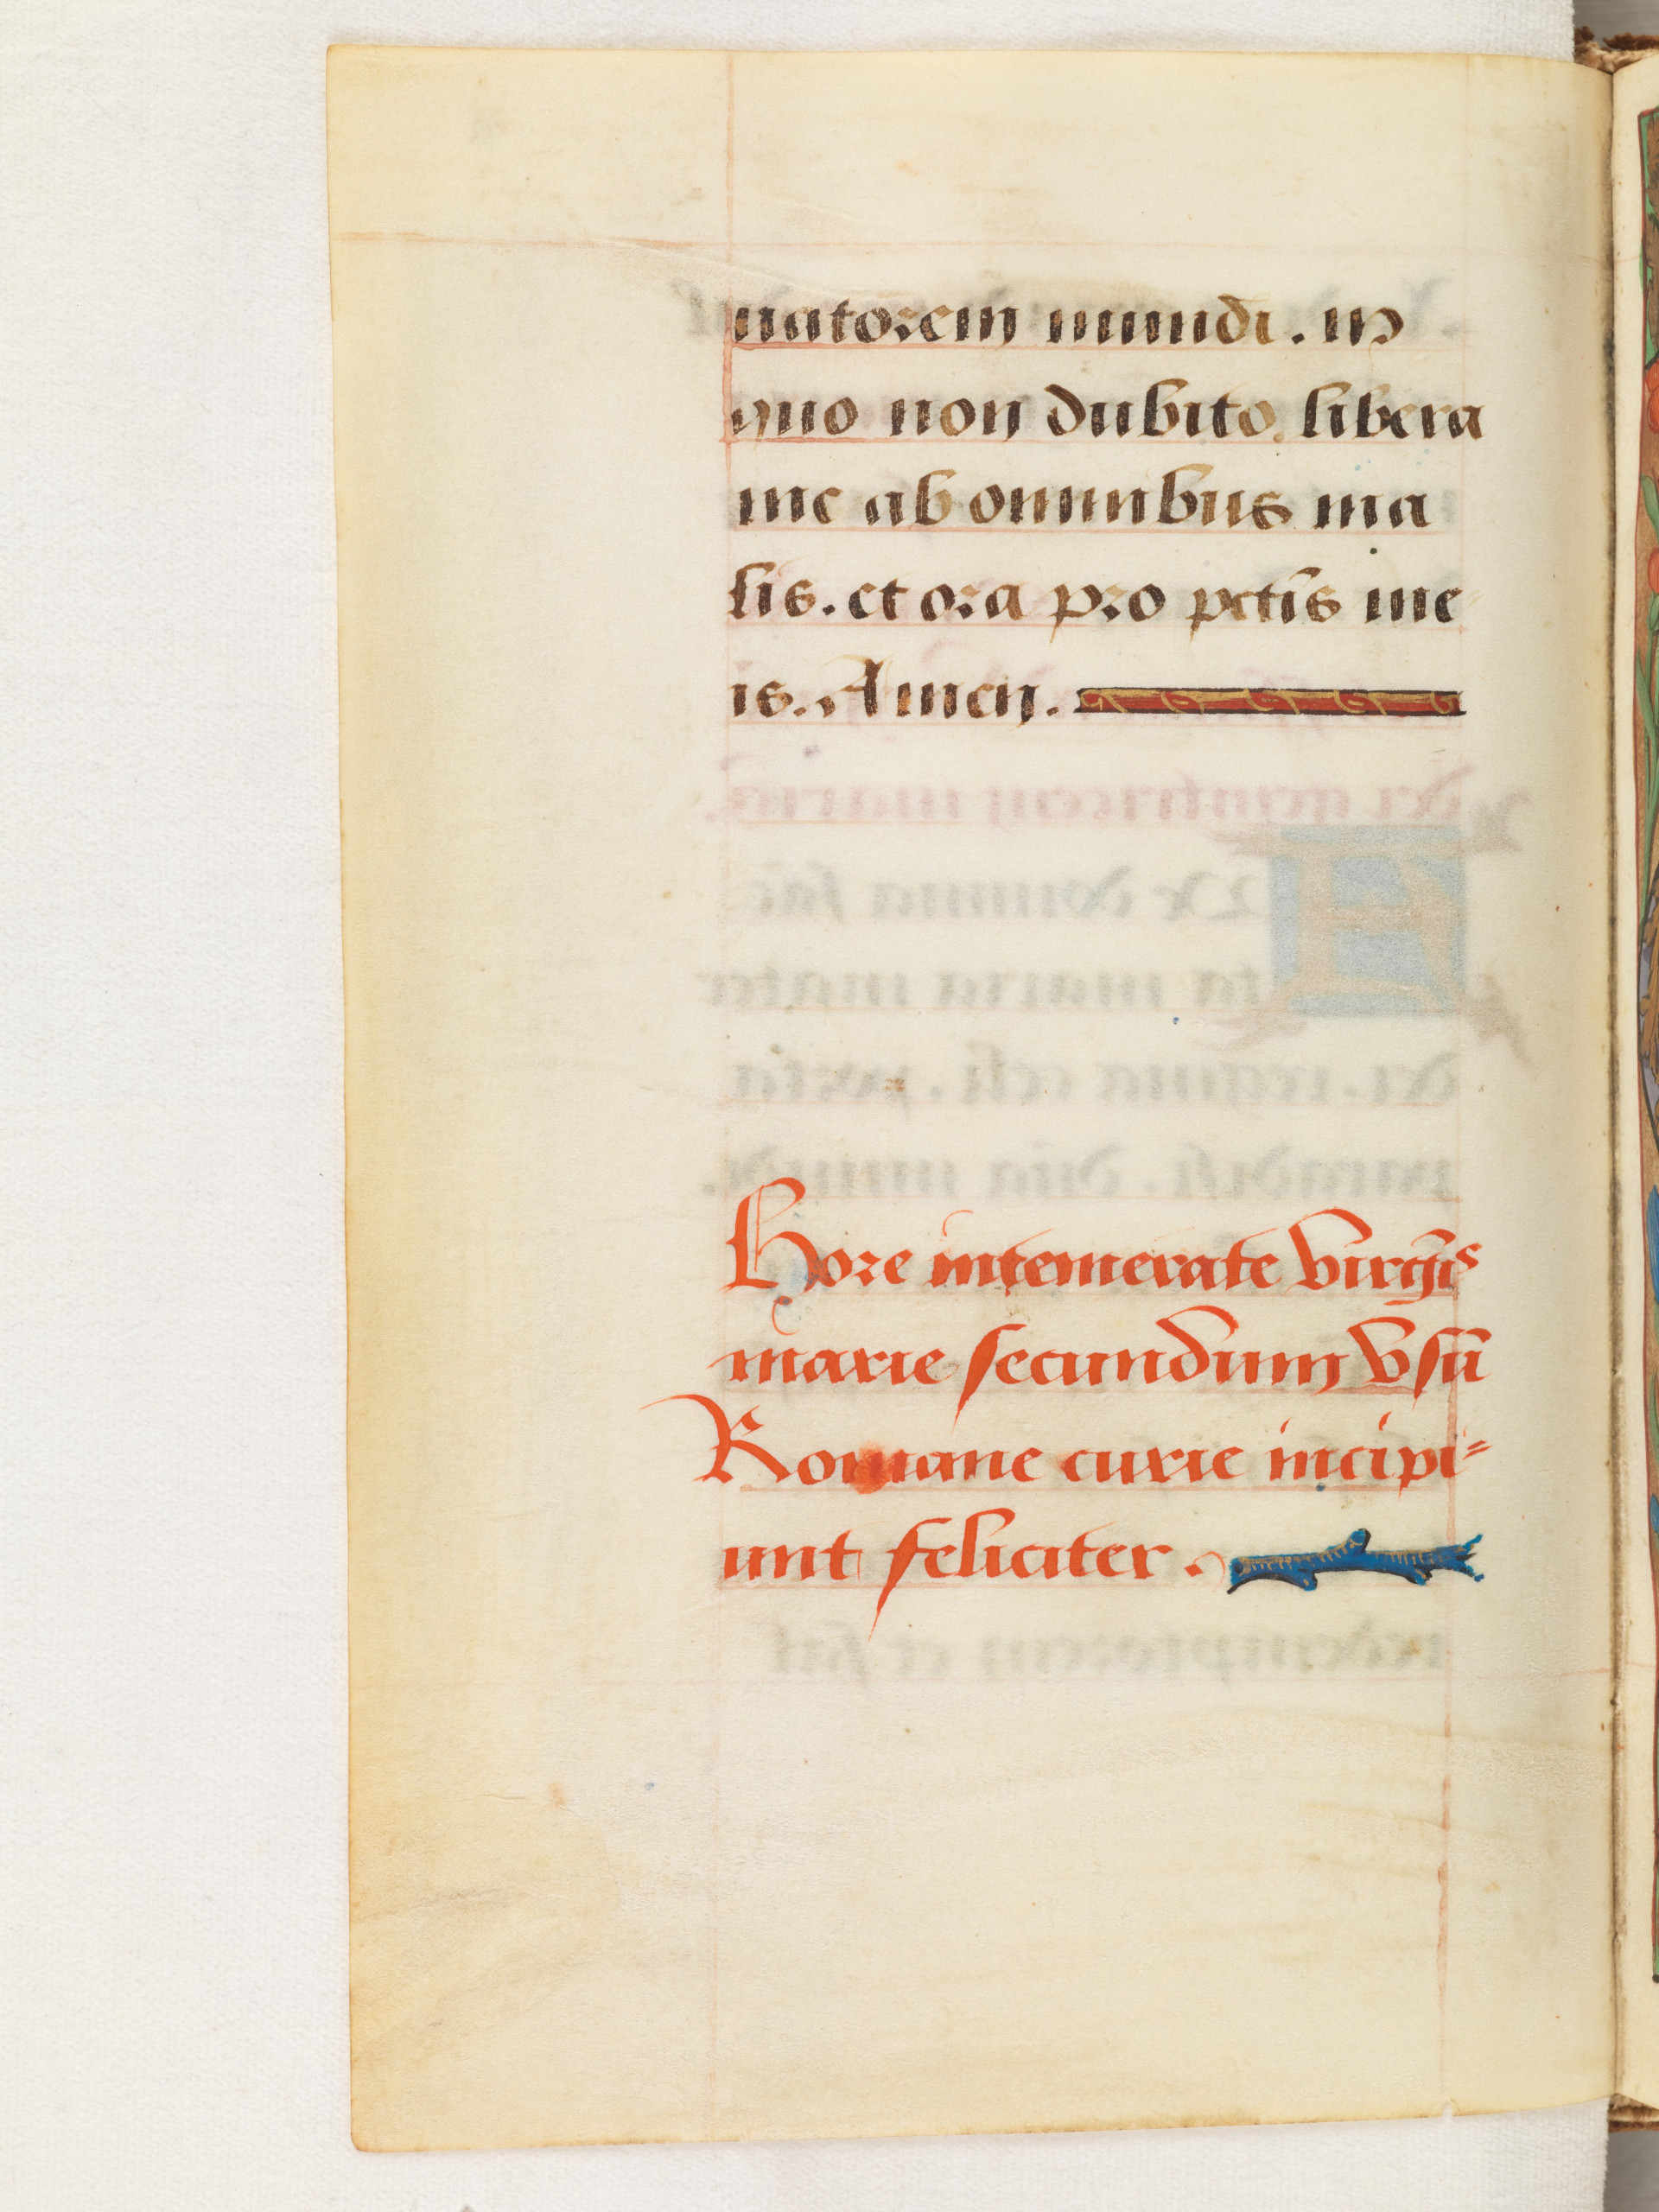 uatorem mundi. in
quo non dubito. libera
me ab omnibus ma
lis. et ora pro pctīs me
is. Amen.
Hore intemerate virgīs
marie secundum vsū
Romane curie incipi=
unt feliciter.